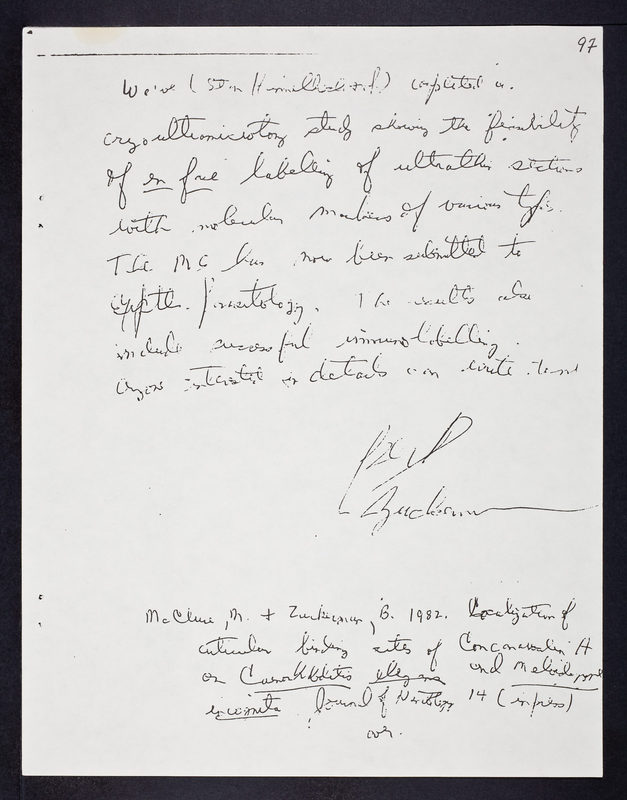 97
We've (Stan Himmelhoch & I) completed a
cryoultramicrotomy study showing the feasibility
of en face labelling of ultrathin sections
with molecular markers of various types.
The MS has now been submitted to
Exptl. Parasitology. The results also
include successful immunolabelling.
Anyone interested in details can write to me
Zuckerman
McClure, M. + Zuckerman, B. 1982. Localization of
cuticular binding sites of Concanavalin A
on Caenorhabditis elegans and Meloidogyne
incognita. Journal of Nematology 14 (in press)
over.